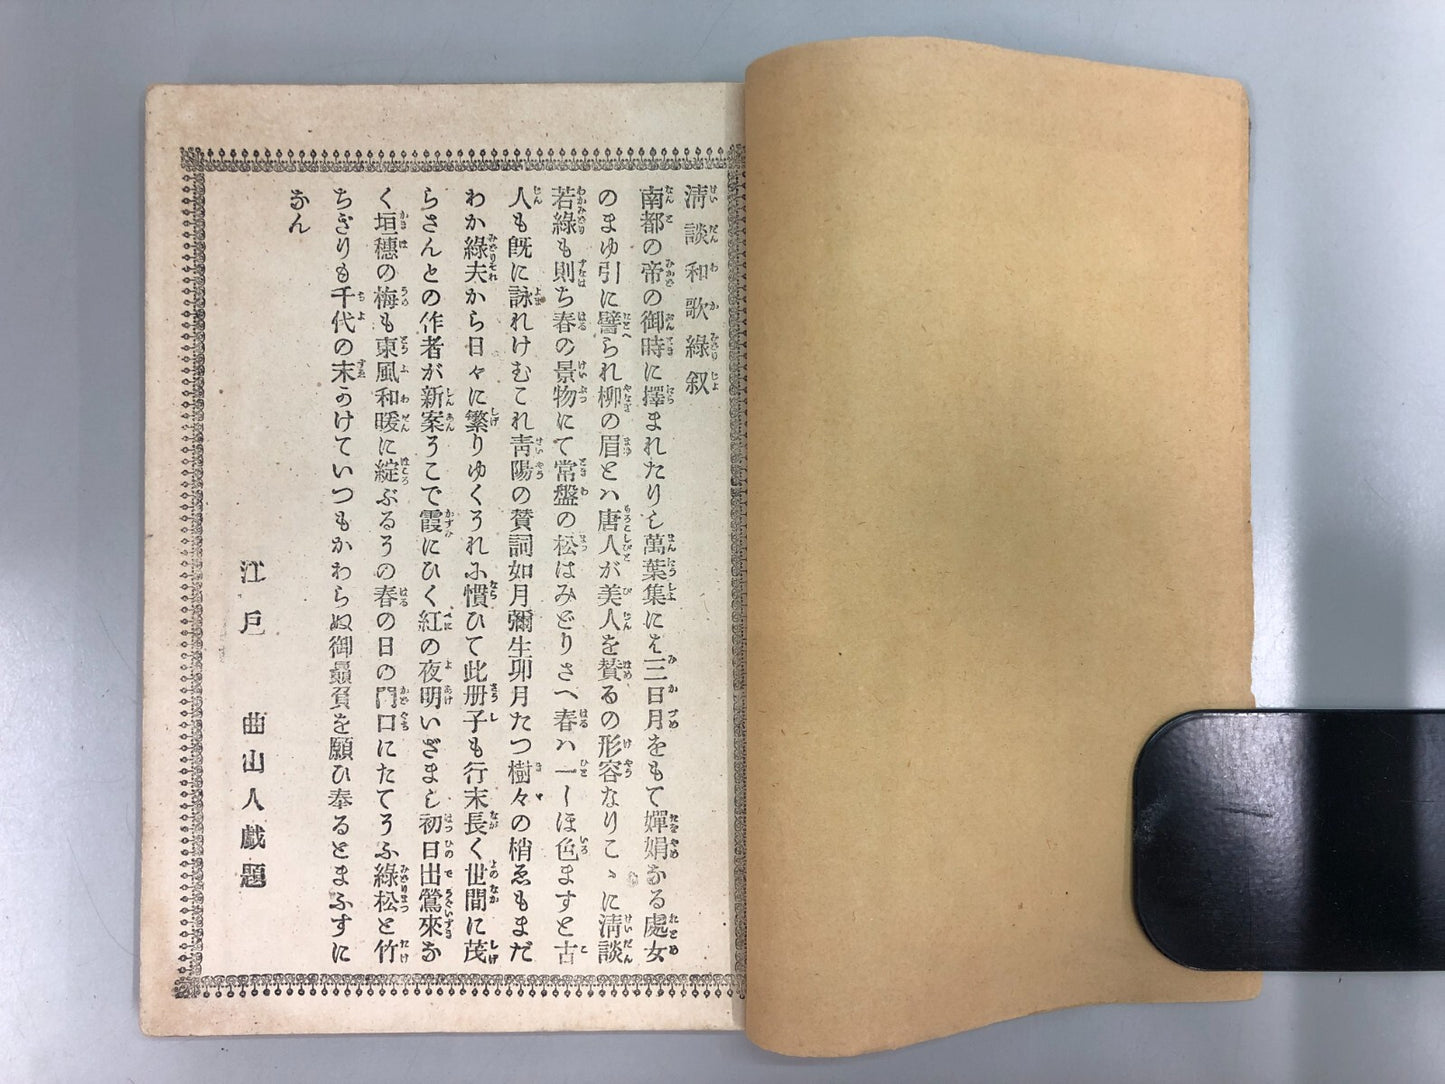 淸談和歌綠叙
南都の帝の御時に擇まれたりし萬葉集にハ三日月をもて嬋娟なる處女
のまゆ引に譬られ柳の眉とハ唐人が美人を賛るの形容なりこゝに淸談
若綠も則ち春の景物にて常盤の松はみどりさへ春ハ一しほ色ますと古
人も既に詠れけむこれ靑陽の賛詞如月彌生卯月たつ樹々の梢ゑもまだ
わか綠夫から日々に繁りゆくうれふ慣ひて此册子も行末長く世間に茂
らさんとの作者が新案うこで霞にひく紅の夜明いざまし初日出鶯來な
く垣穗の梅も東風和暖に綻ぶるうの春の日の門口にたてうふ綠松と竹
ちぎりも千代の末かけていつもかわらぬ御贔負を願ひ奉るとまふすに
なん
江戸 曲山人戯題